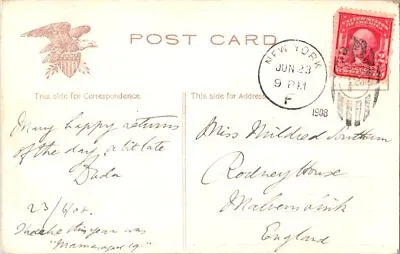 POST CARD
NEW YORK
JUN 23
9 PM
F
1908
UNITED STATES
This side for Correspondence.
This side for Address.
Many happy returns
of the day, a bit late
Dada
23/6/08.
this year was
Miss Mildred
Rodney House
Malvern Link
England